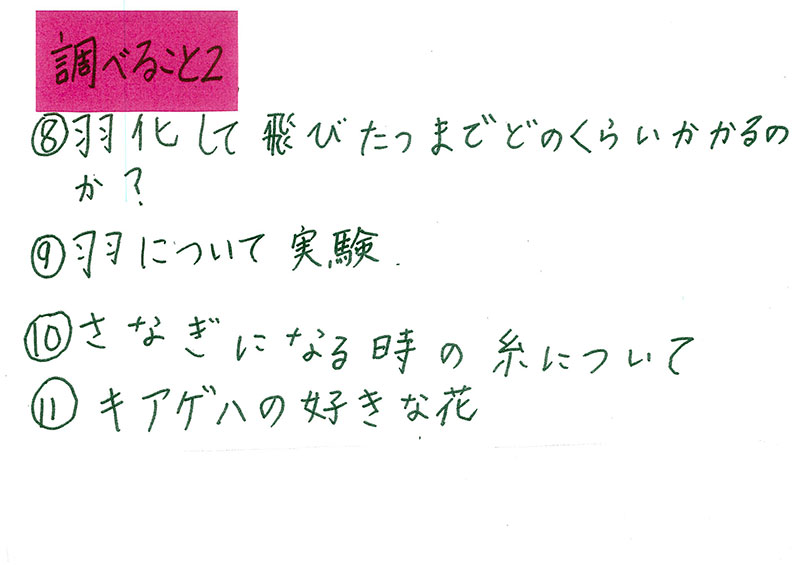 調べること2
⑧羽化して飛びたつまでどのくらいかかるの
か?
⑨羽について実験
⑩さなぎになる時の糸について
⑪キアゲハの好きな花